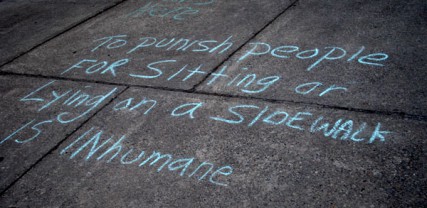 here
To punish people
FOR Sitting or
Lying on a SIDEWALK
IS INhumane